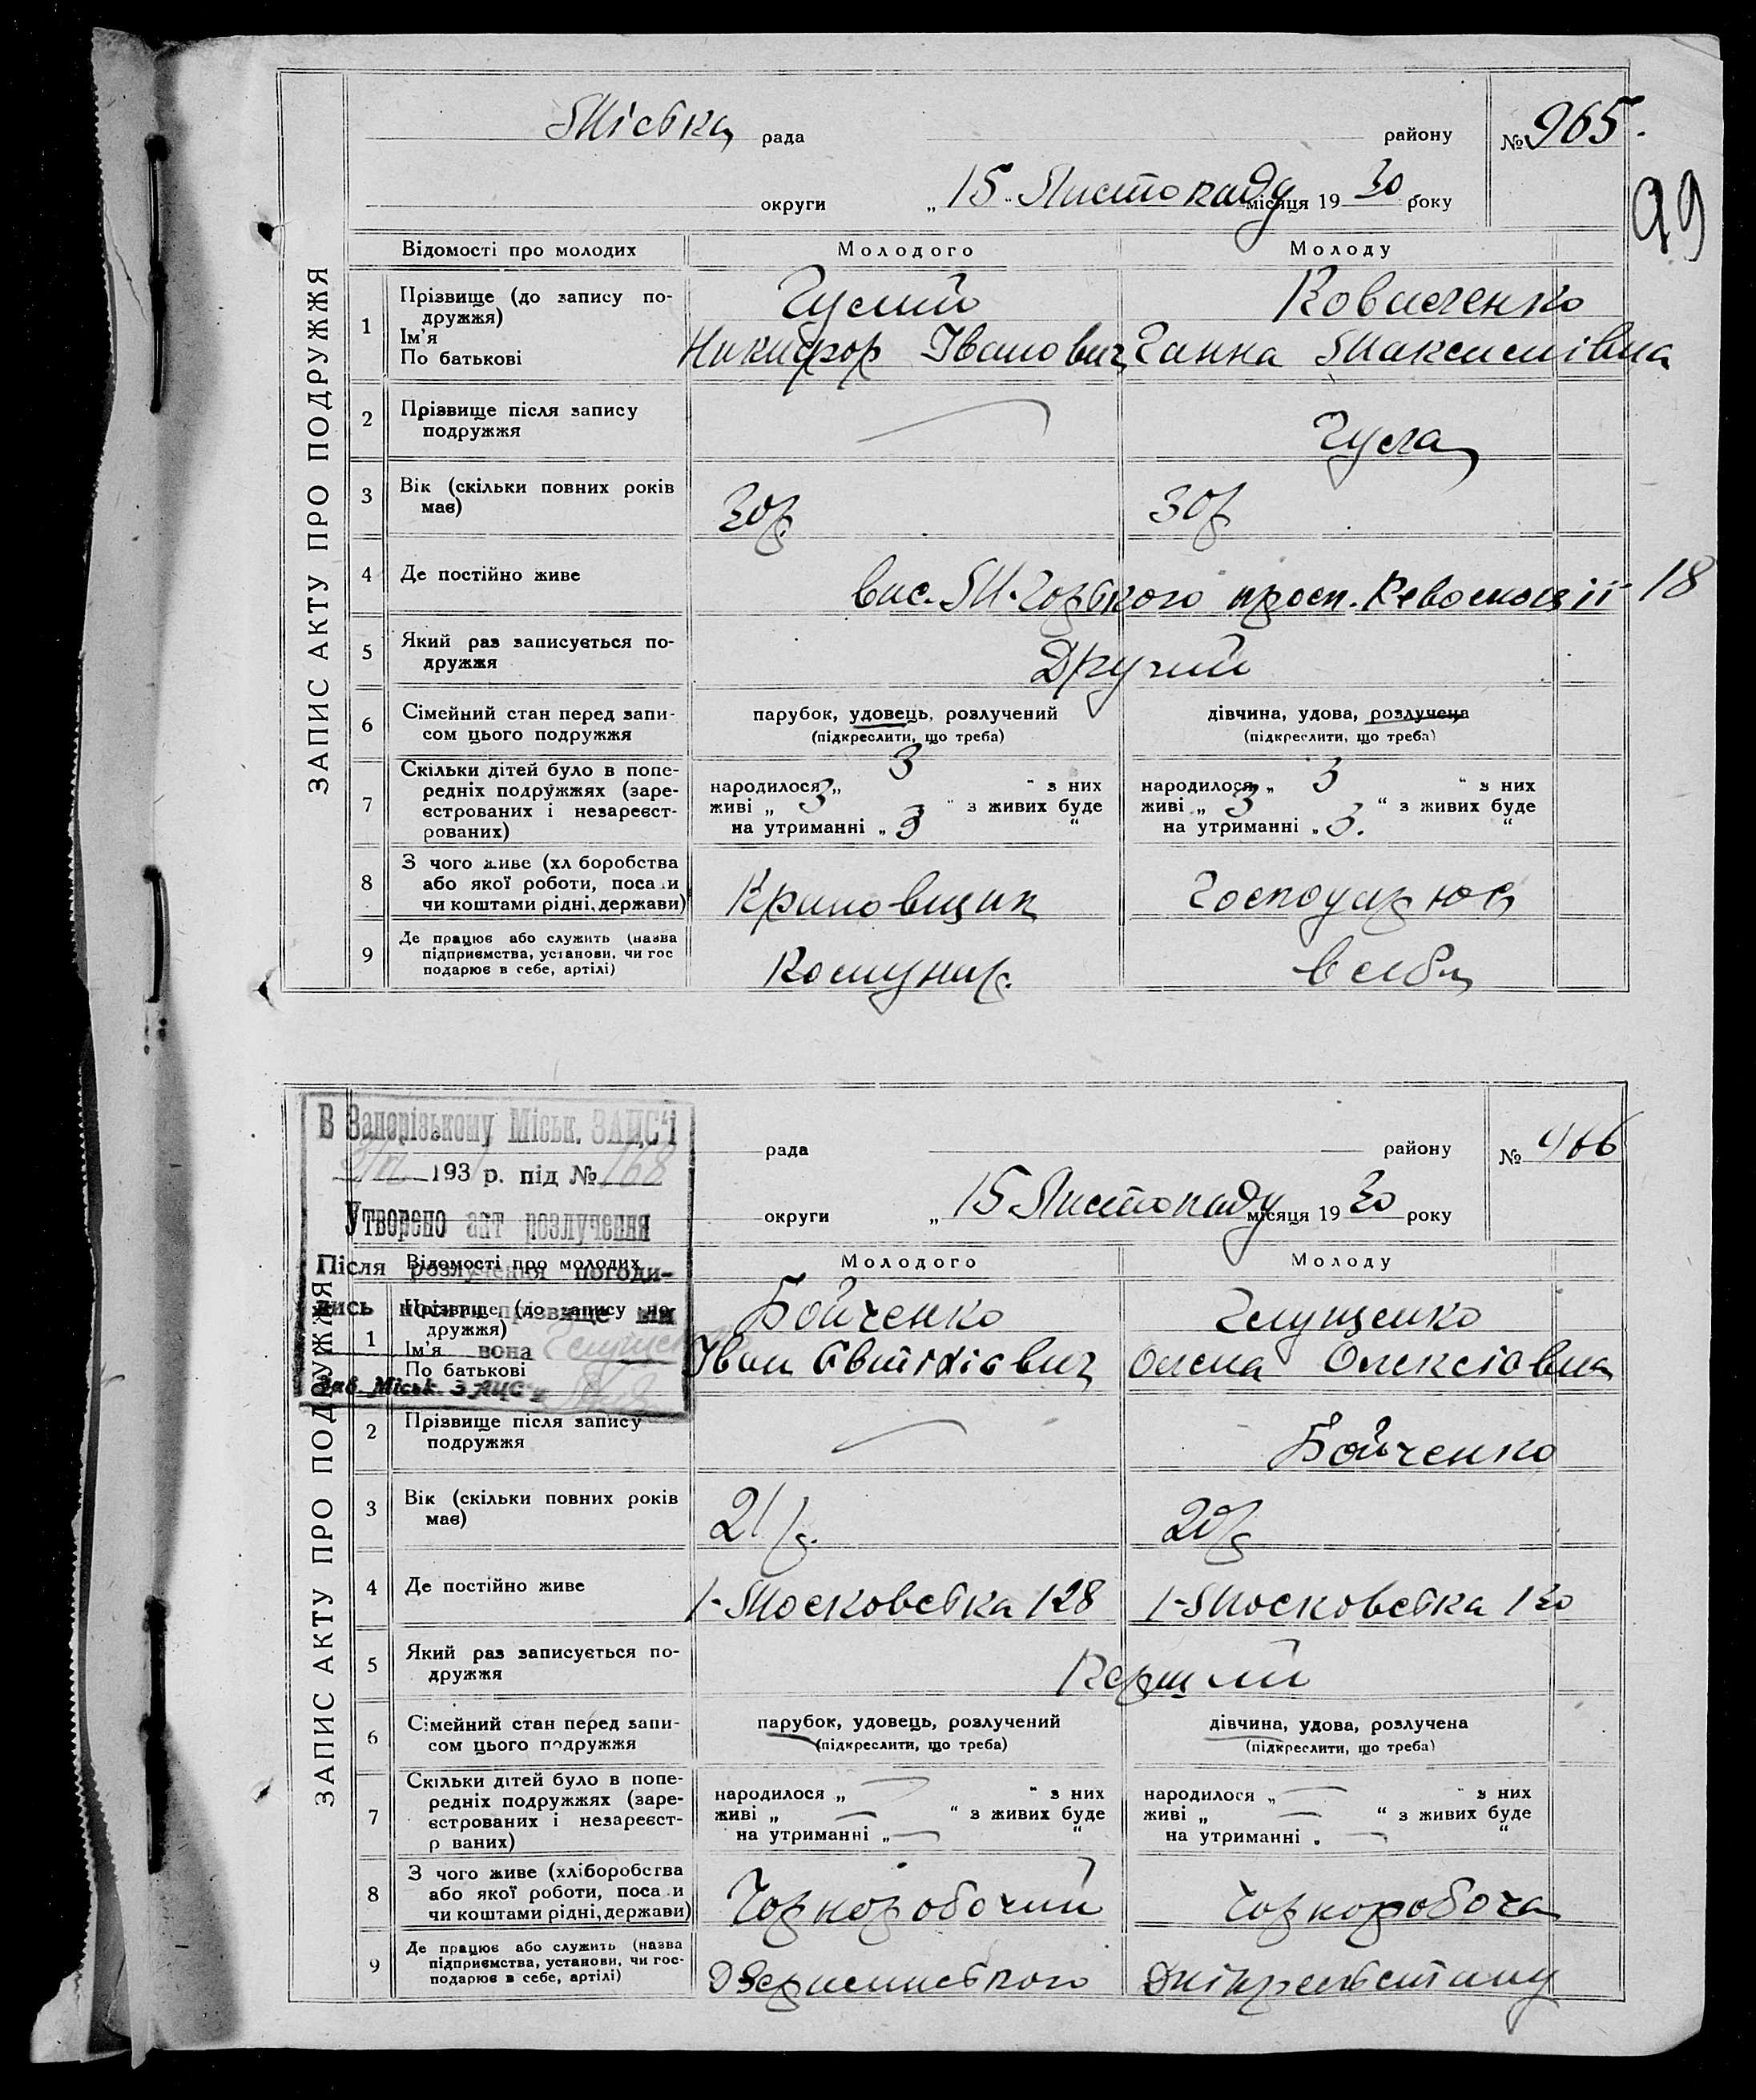 Міська рада району № 965.
99
округи „15" Листопаду місяця 1930 року
ЗАПИС АКТУ ПРО ПОДРУЖЖЯ
Відомості про молодих Молодого Молоду
1 Прізвище (до запису по-
дружжя)
Ім'я
По батькові
Гусий
Никифор Іванович
Коваленко
Ганна Максимівна
2 Прізвище після запису
подружжя
Гуса
3 Вік (скільки повних років
має)
30 р. 30 р
4 Де постійно живе
вис. М. Горького просп. Революції 18
5 Який раз записується по-
дружжя
Другий
6 Сімейний стан перед запи-
сом цього подружжя
парубок, удовець, розлучений
(підкреслити, що треба)
дівчина, удова, розлучена
(підкреслити, що треба)
7 Скільки дітей було в попе-
редніх подружжях (заре-
єстрованих і незареєст-
рованих)
народилося „ 3 " з них
живі „ 3 " з живих буде
на утриманні „ 3 "
народилося „ 3 " з них
живі „ 3 " з живих буде
на утриманні „ 3. "
8 З чого живе (хл боробства
або якої роботи, поса и
чи коштами рідні, держави)
Крановщик Господарює
9 Де працює або служить (назва
підприємства, установи, чи гос
подарює в себе, артілі)
Комунар. в себе
В Запорізькому Міськ. ЗАЦС'і
193 р. під № 168
Утворено акт розлучення
Після розлучення погоди-
лись носити прізвище він
вона
Зав. Міськ. ЗАЦС'у
рада району № 966
округи „15 Листопаду місяця 1930 року
ЗАПИС АКТУ ПРО ПОДРУЖЖЯ
Відомості про молодих Молодого Молоду
1 Прізвище (до запису по-
дружжя)
Ім'я
По батькові
Бойченко
Іван Євтіхієвич
Глущенко
Олена Олексіовна
2 Прізвище після запису
подружжя
Бойченко
3 Вік (скільки повних років
має)
21 р. 20 р
4 Де постійно живе
1-Московська 128 1-Московська 130
5 Який раз записується по-
дружжя
Перший
6 Сімейний стан перед запи-
сом цього подружжя
парубок, удовець, розлучений
(підкреслити, що треба)
дівчина, удова, розлучена
(підкреслити, що треба)
7 Скільки дітей було в попе-
редніх подружжях (заре-
єстрованих і незареєст-
р ваних)
народилося „ — " з них
живі „ — " з живих буде
на утриманні „ — "
народилося „ — " з них
живі „ — " з живих буде
на утриманні „ — "
8 З чого живе (хліборобства
або якої роботи, поса и
чи коштами рідні, держави)
Чорноробочий Чорноробоча
9 Де працює або служить (назва
підприємства, установи, чи гос-
подарює в себе, артілі)
Дзержинського Дніпрельстану